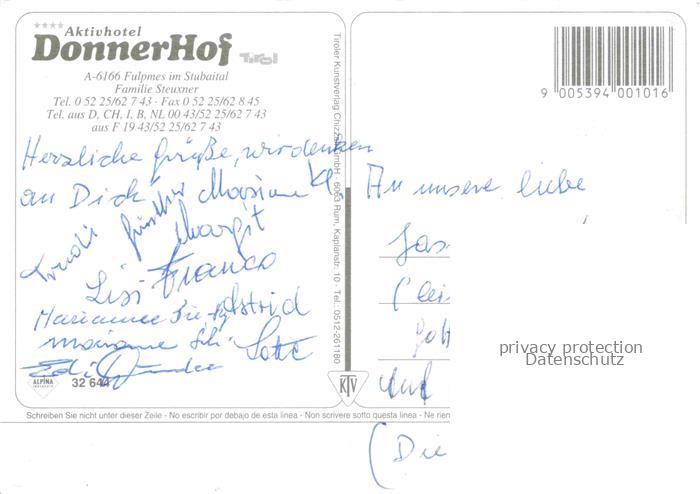 ★★★★ Aktivhotel
DonnerHof Tirol
A-6166 Fulpmes im Stubaital
Familie Steuxner
Tel. 0 52 25/62 7 43 · Fax 0 52 25/62 8 45
Tel. aus D, CH, I, B, NL 00 43/52 25/62 7 43
aus F 19 43/52 25/62 7 43
Herzliche Grüße, wir denken
an Dich
Margit
Lisi Franco
Marianne Astrid
Marianne Lotte
Edi
ALPINA
32 644
Tiroler Kunstverlag Chizzali GmbH · 6063 Rum, Kaplanstr. 10 · Tel. 0512-261180
KTV
9 005394 001016
An unsere liebe
und
(Die
privacy protection
Datenschutz
Schreiben Sie nicht unter dieser Zeile - No escribir por debajo de esta linea - Non scrivere sotto questa linea - Ne rien